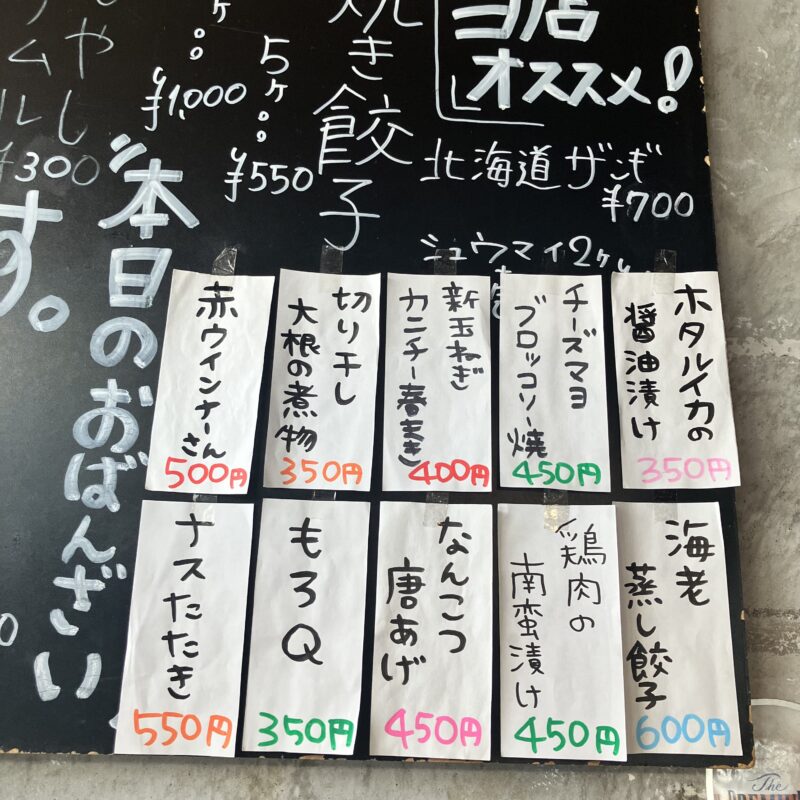 当店
オススメ!
北海道ザンギ
¥700
シュウマイ2ヶ
焼き餃子
5ヶ
¥550
¥1,000
やし
ムル
¥300
"本日のおばんざい
す。
ホタルイカの
醤油漬け
350円
チーズマヨ
ブロッコリー焼
450円
新玉ねぎ
カニチー春まき
400円
切り干し
大根の煮物
350円
赤ウインナー
さん
500円
海老
蒸し餃子
600円
鶏肉の
南蛮漬け
450円
なんこつ
唐あげ
450円
もろQ
350円
ナスたたき
550円
The